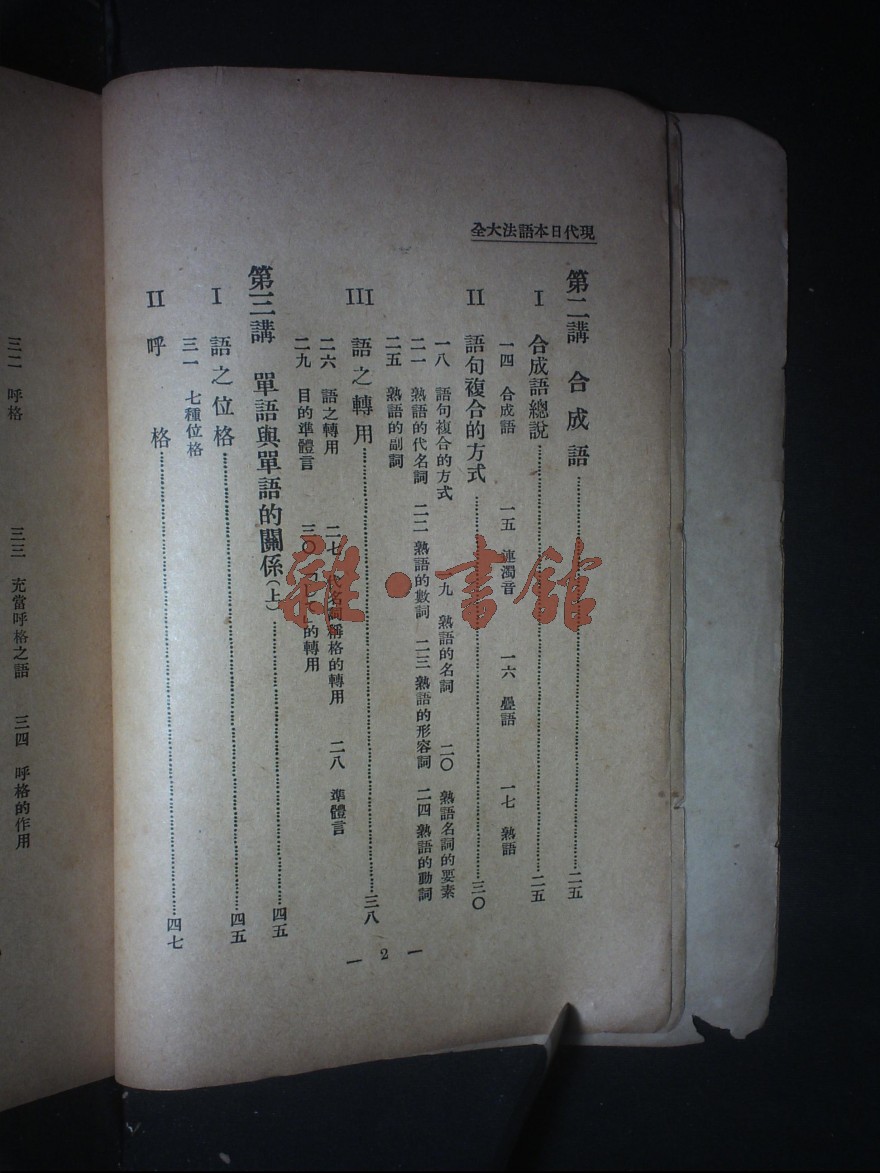 現代日本語法大全
第二講 合成語……二五
I 合成語總說……二五
一四 合成語 一五 連濁音 一六 疊語 一七 熟語
II 語句複合的方式……三〇
一八 語句複合的方式 九 熟語的名詞 二〇 熟語名詞的要素
二一 熟語的代名詞 二二 熟語的數詞 二三 熟語的形容詞 二四 熟語的動詞
二五 熟語的副詞
III 語之轉用……三八
二六 語之轉用 二七 代名詞稱格的轉用 二八 準體言
二九 目的準體言 三〇 的轉用
第三講 單語與單語的關係(上)……四五
I 語之位格……四五
三一 七種位格
II 呼格……四七
— 2 —
三二 呼格 三三 充當呼格之語 三四 呼格的作用
雜·書館